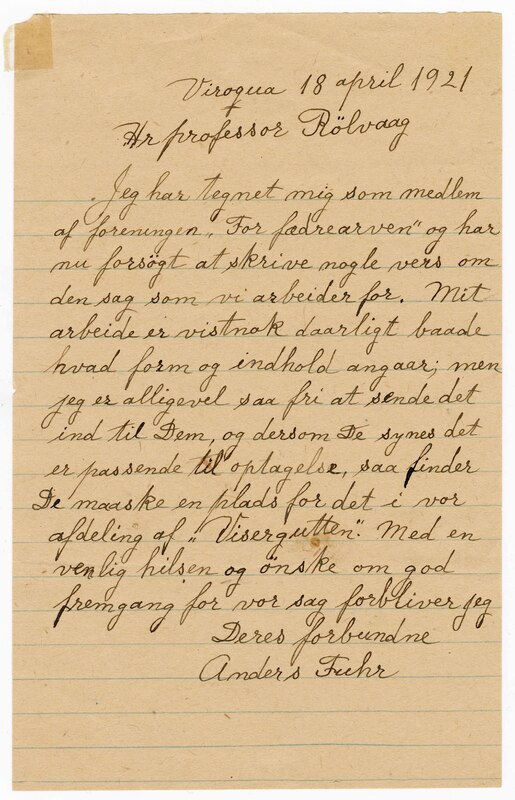 Viroqua 18 april 1921
Hr professor Rölvaag
Jeg har tegnet mig som medlem
af foreningen „For fædrearven" og har
nu forsøgt at skrive nogle vers om
den sag som vi arbeider for. Mit
arbeide er vistnok daarligt baade
hvad form og indhold angaar; men
jeg er alligevel saa fri at sende det
ind til Dem, og dersom De synes det
er passende til optagelse, saa finder
De maaske en plads for det i vor
afdeling af „Visergutten". Med en
venlig hilsen og ønske om god
fremgang for vor sag forbliver jeg
Deres forbundne
Anders Fuhr